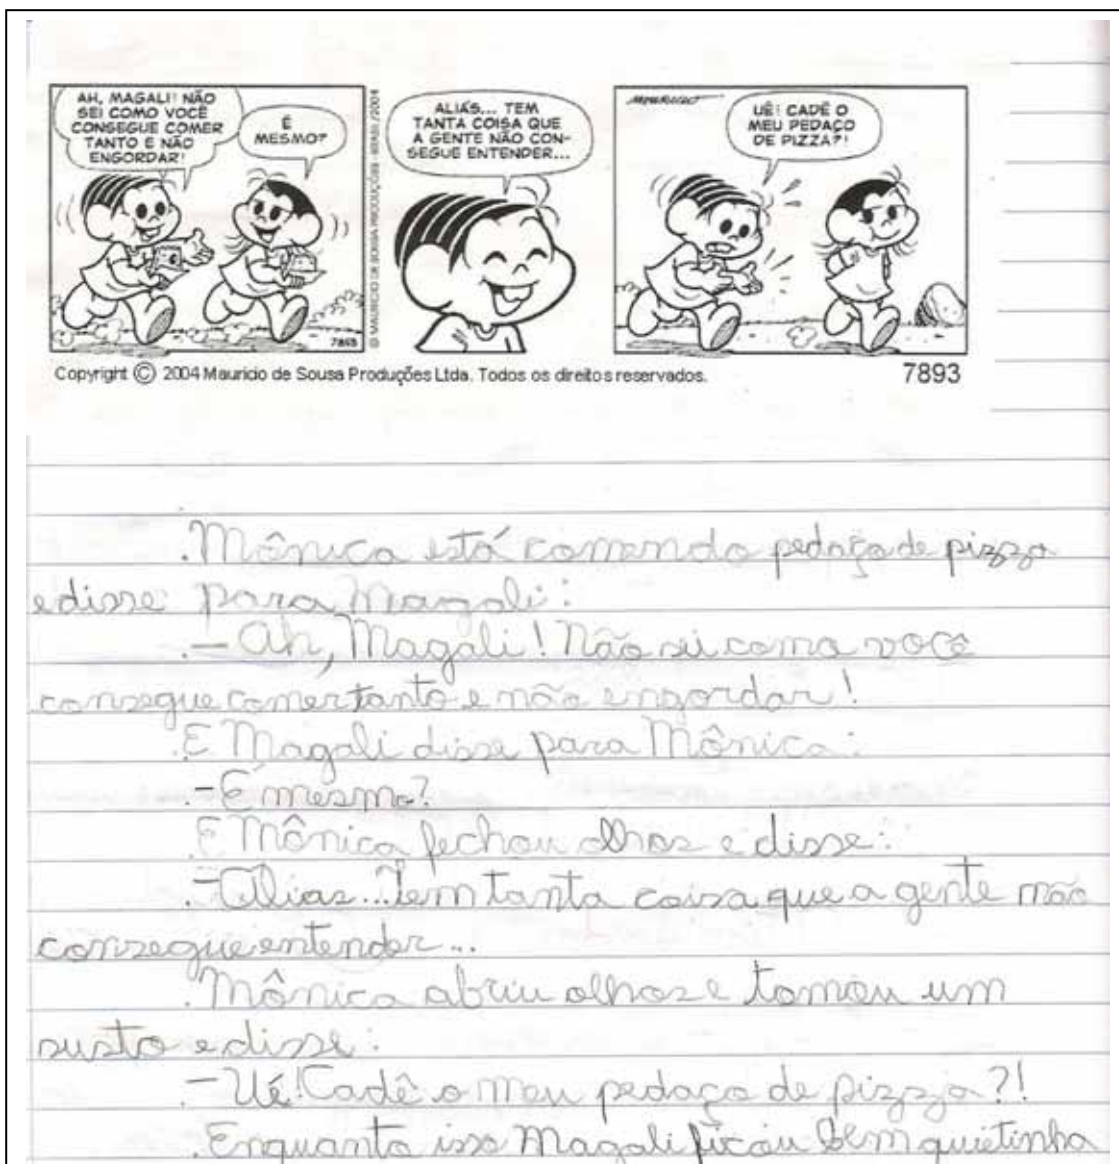 AH, MAGALI! NÃO
SEI COMO VOCÊ
CONSEGUE COMER
TANTO E NÃO
ENGORDAR!
É
MESMO?
7893
© MAURICIO DE SOUSA PRODUÇÕES - BRASIL/2004
ALIÁS... TEM
TANTA COISA QUE
A GENTE NÃO CON-
SEGUE ENTENDER...
MAURICIO
UÉ! CADÊ O
MEU PEDAÇO
DE PIZZA?!
Copyright © 2004 Mauricio de Sousa Produções Ltda. Todos os direitos reservados.
7893
.Mônica está comendo pedaço de pizza
e disse para Magali:
.— Ah, Magali! Não sei como você
consegue comer tanto e não engordar!
.E Magali disse para Mônica:
.- É mesmo?
.E Mônica fechou olhos e disse:
.- Alias... Tem tanta coisa que a gente não
consegue entender...
.Mônica abriu olhos e tomou um
susto e disse:
.- Ué! Cadê o meu pedaço de pizza?!
.Enquanto isso Magali ficou bem quietinha